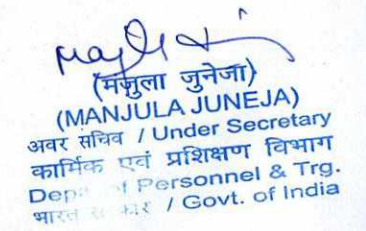 (मंजुला जुनेजा)
(MANJULA JUNEJA)
अवर सचिव / Under Secretary
कार्मिक एवं प्रशिक्षण विभाग
Personnel & Trg.
भारत / Govt. of India